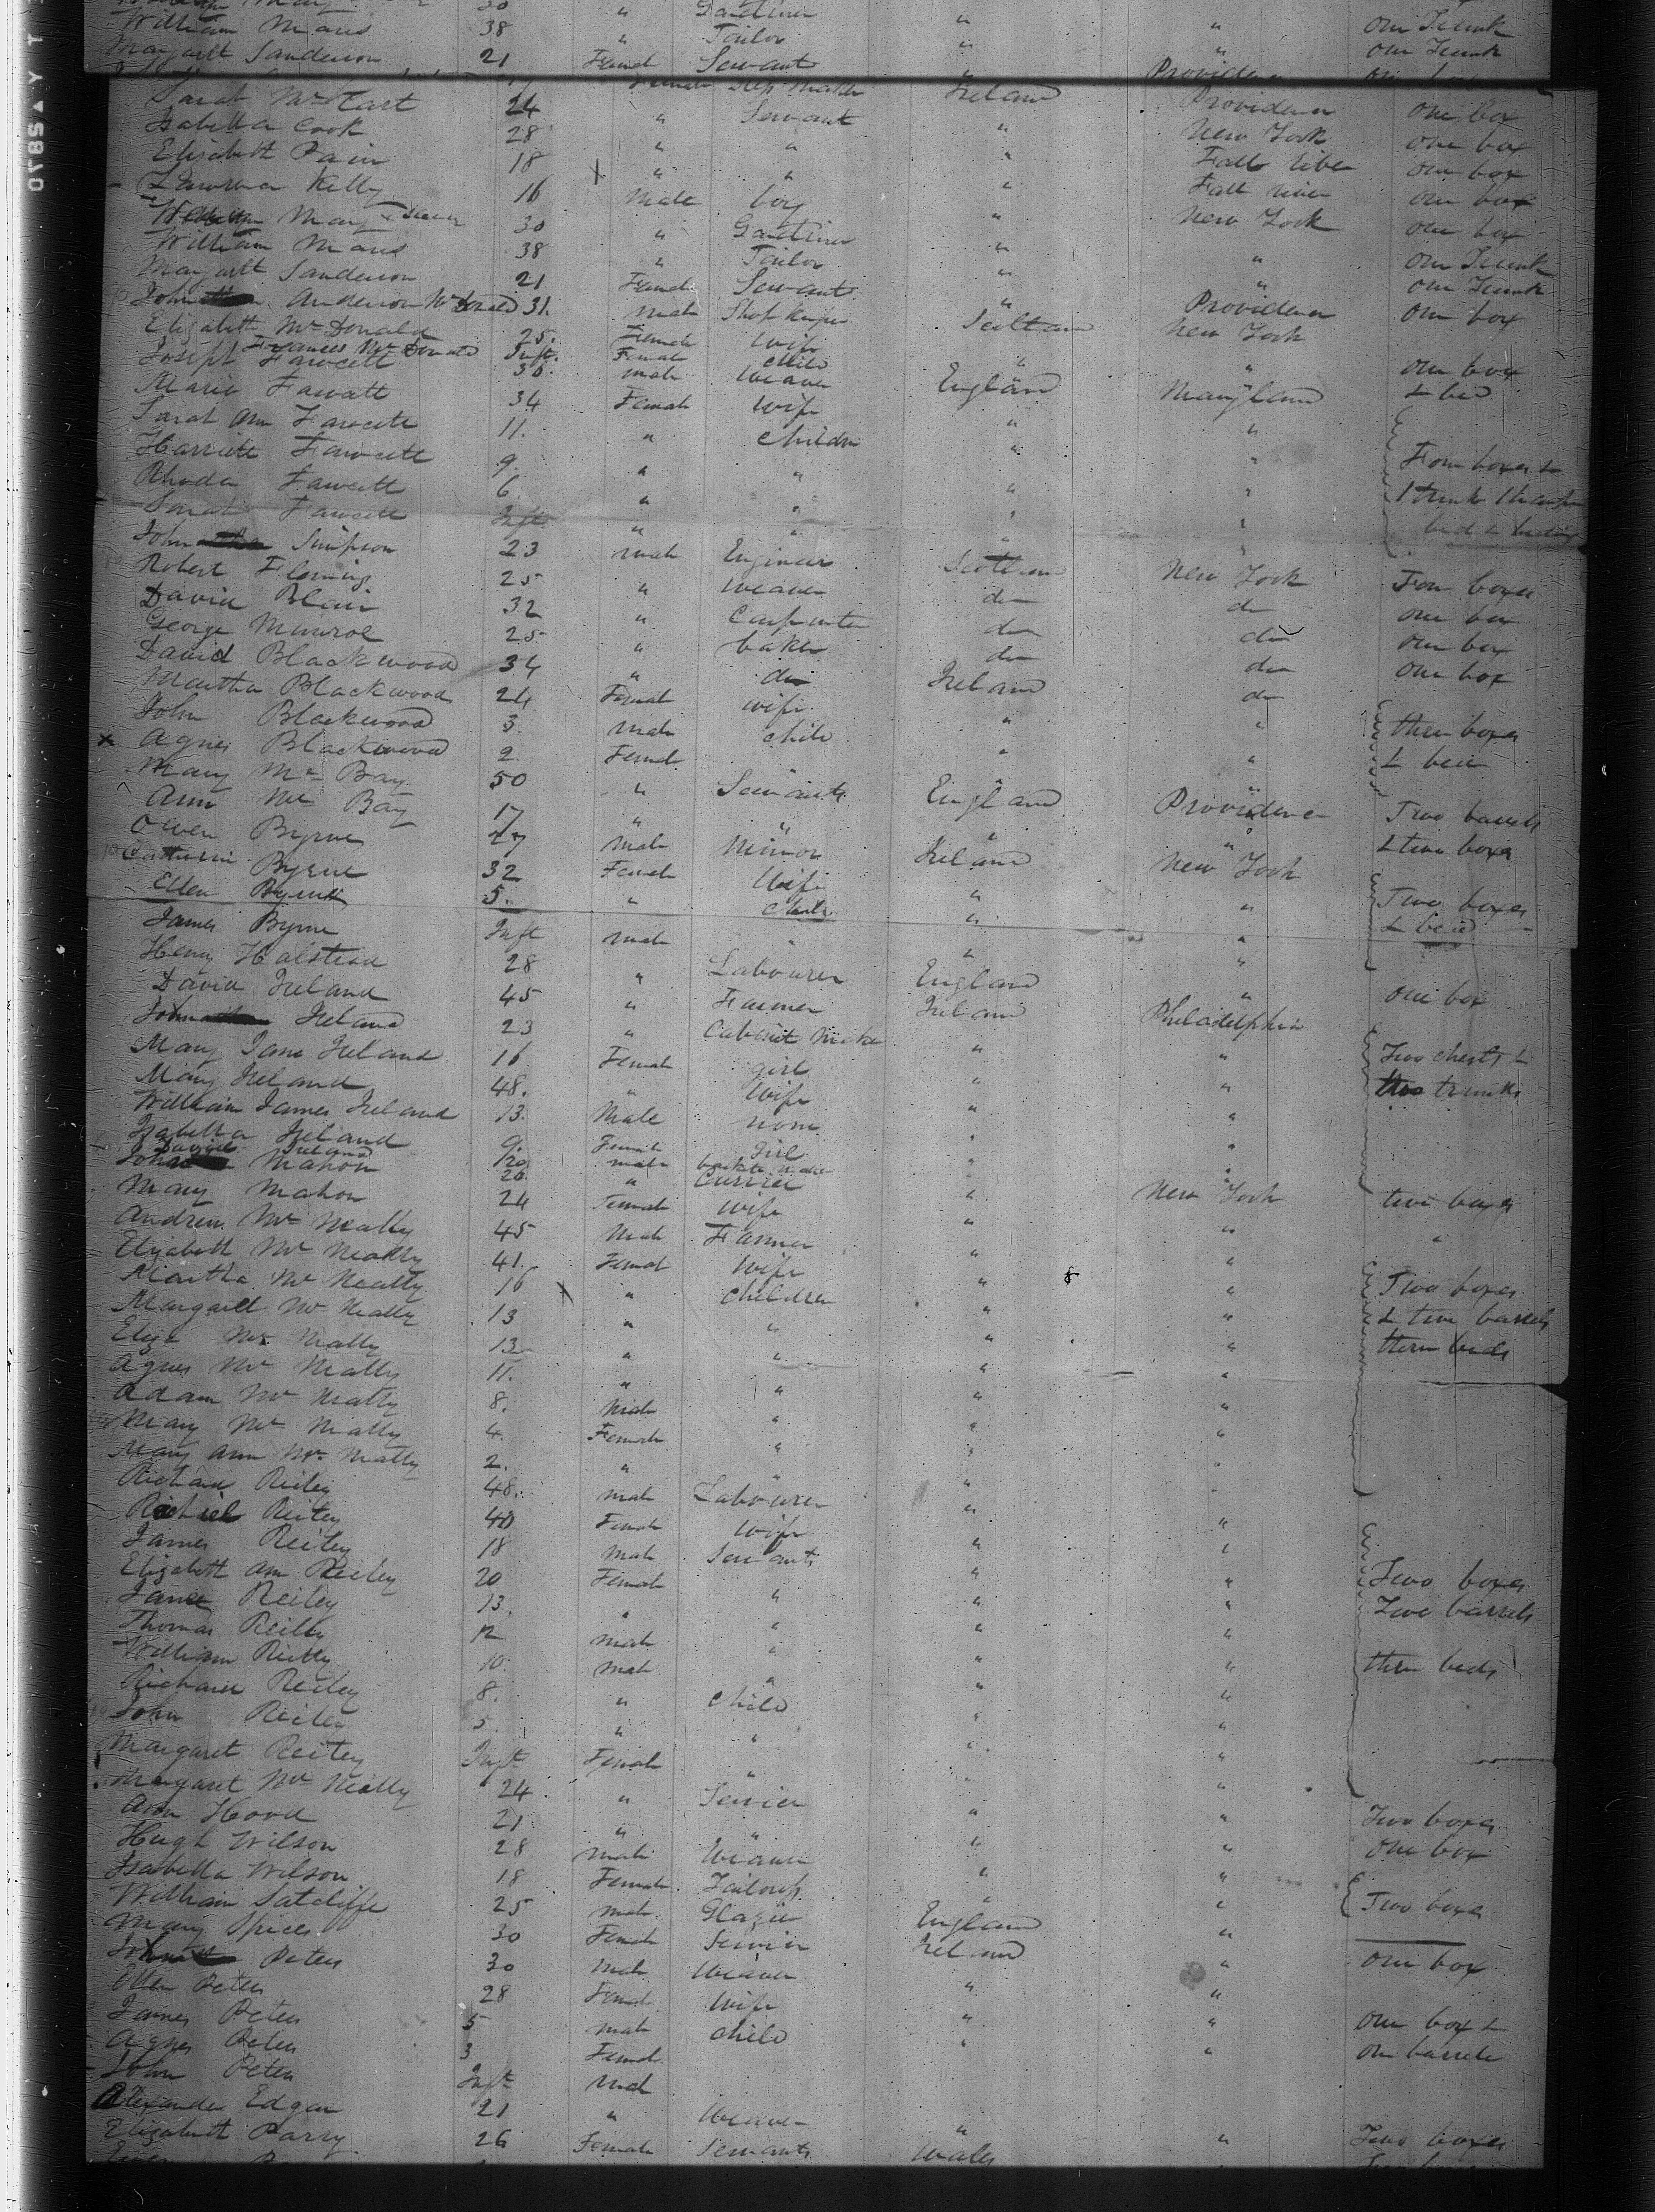 38 " Tailor " " one Trunk
Margarett Sanderson 21 Female Servant " Providence
Sarah McCart 24 " Servant Ireland Providence one box
Isabella Cook 28 " " " New York one box
Elizabeth Pain 18 " " " Fall river one box
Kelly 16 male boy " Fall river one box
30 " Gardiner " New York one box
William Maris 38 " Tailor " " one Trunk
Margarett Sanderson 21 Female Servant " " one Trunk
John Anderson McDonald 31. male Shop keeper Scotland Providence one box
Elizabeth McDonald 25. Female wife New York
Frances McDonald Inft. Female child "
Joseph Fawcett 36. male weaver England Maryland one box
Maria Fawcett 34 Female wife " " & bed
Sarah Ann Fawcett 11. " children " "
Harriett Fawcett 9. " " " " Four boxes &
Rhoda Fawcett 6 " " " " 1 trunk 1
Sarah Fawcett Inft " " " " bed & bedding
John Simpson 23 male Engineer Scotland New York Four boxes
Robert Fleming 25 " weaver do do one box
David Blair 32 " Carpenter do do one box
George Munroe 25 " baker do do one box
David Blackwood 34 " do Ireland do
Martha Blackwood 24 Female wife " "
John Blackwood 3. male child " " three boxes
Agnes Blackwood 2. Female " " " & bed
Mary McBay 50 " Servants England Providence Two barrels
Ann McBay 17 " " " " & two boxes
Owen Byrne 27 male Minor Ireland New York
Catherine Byrne 32 Female Wife " " Two boxes
Ellen Byrne 5. " child " " & bed
James Byrne Inft male " " "
Henry Halstead 28 " Labourer England " one box
David Ireland 45 " Farmer Ireland Philadelphia
John Ireland 23 " Cabinet Maker " " Two chests &
Mary Jane Ireland 16 Female girl " " two trunks
Mary Ireland 48. " Wife " "
William James Ireland 13. Male none " "
Isabella Ireland 9. Female girl " "
David Ireland 20 male
John Mahon 26. " Currier " New York two boxes
Mary Mahon 24 Female wife " " "
Andrew McNeally 45 Male Farmer " "
Elizabeth McNeally 41. Female Wife " " Two boxes
Martha McNeally 16 " children " " & two barrels
Margarett McNeally 13 " " " " three beds
Eliza McNeally 13 " " " "
Agnes McNeally 11. " " " "
Adam McNeally 8. Male " " "
Mary McNeally 4. Female " " "
Mary Ann McNeally 2. " " " "
Richard Reiley 48. male Labourer " "
Rachiel Reiley 40 Female Wife " "
James Reiley 18 male Servants " " Two boxes
Elizabeth Ann Reiley 20 Female " " " Two barrels
Jane Reiley 13. " " " "
Thomas Reilly 12 male " " " three beds
William Reilly 10. male " " "
Richard Reiley 8. " child " "
John Reiley 5. " " " "
Margaret Reiley Inft Female " " "
Margaret McNeally 24 " Servier " " Two boxes
Ann Hood 21. " " " " one box
Hugh Wilson 28 male Weaver " "
Isabella Wilson 18 Female Tailoress " " Two boxes
William Satcliffe 25 male Glazier England "
Mary Speers 30 Female Servier Ireland " one box
John Peters 30 Male Weaver " "
Ellen Peters 28 Female Wife " " one box &
James Peters 5 male child " " one barrele
Agnes Peters 3 Female
John Peters Inft Male
Alexander Edgar 21 " Weaver " " Two boxes
Elizabeth Parry 26 Female Servants Wales